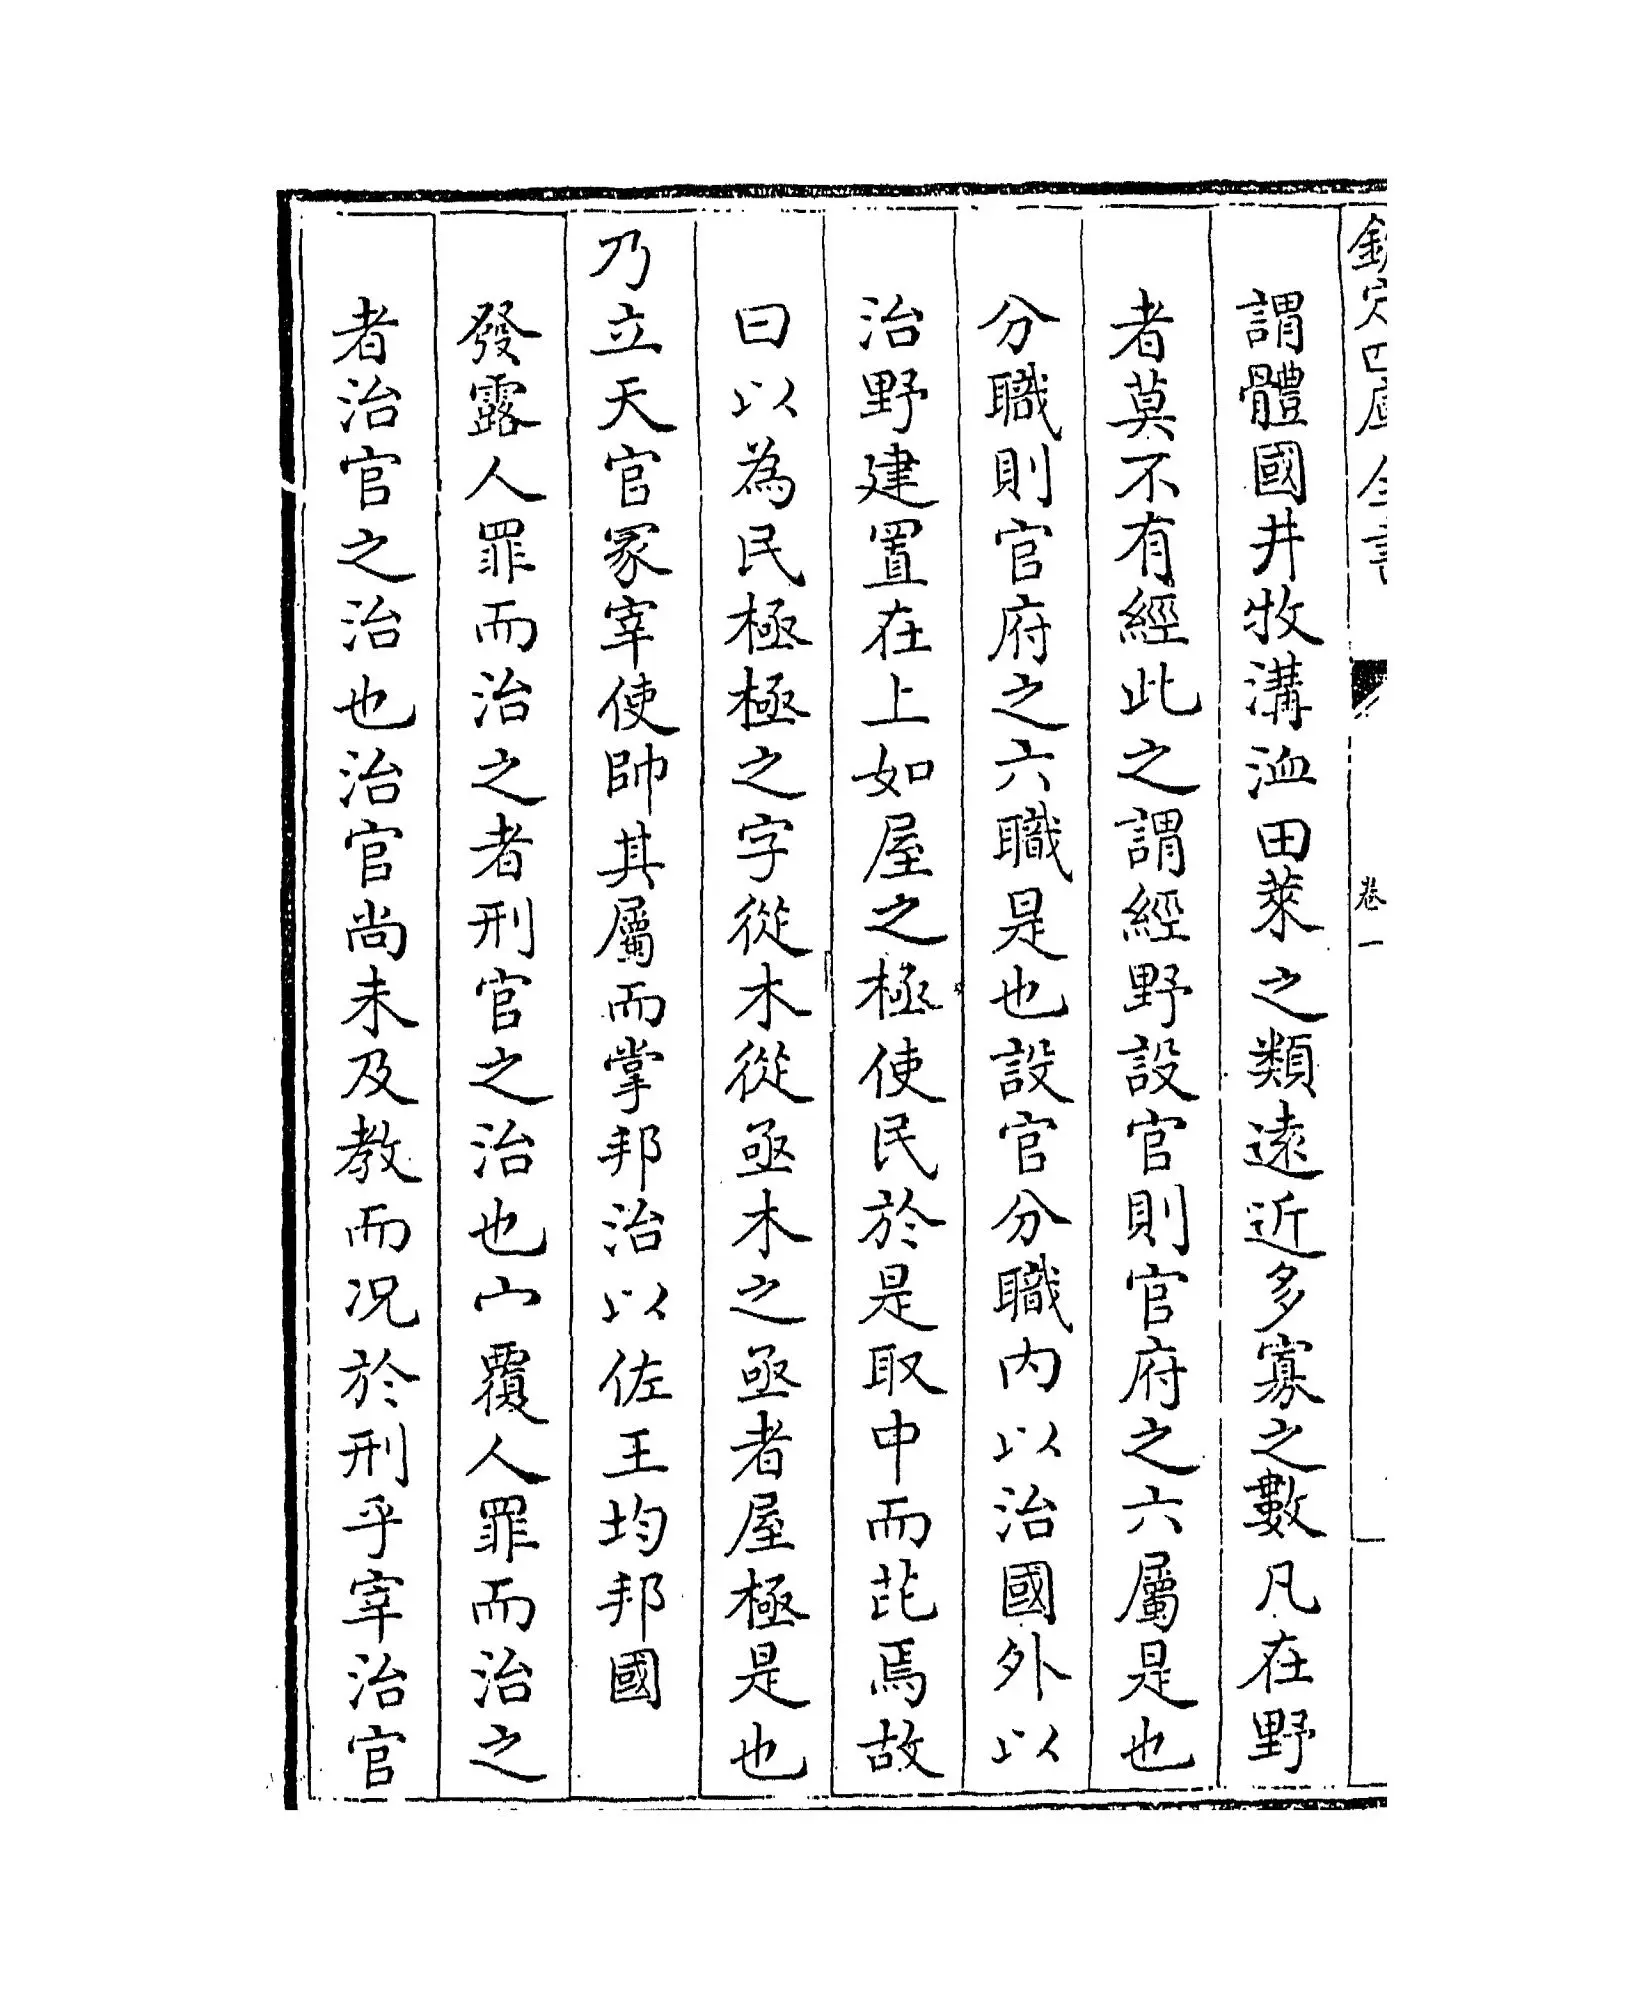 欽定四庫全書 卷一
謂體國井牧溝洫田萊之類遠近多寡之數凡在野
者莫不有經此之謂經野設官則官府之六屬是也
分職則官府之六職是也設官分職內以治國外以
治野建置在上如屋之極使民於是取中而芘焉故
曰以為民極極之字從木從亟木之亟者屋極是也
乃立天官冢宰使帥其屬而掌邦治以佐王均邦國
發露人罪而治之者刑官之治也宀覆人罪而治之
者治官之治也治官尚未及教而况於刑乎宰治官